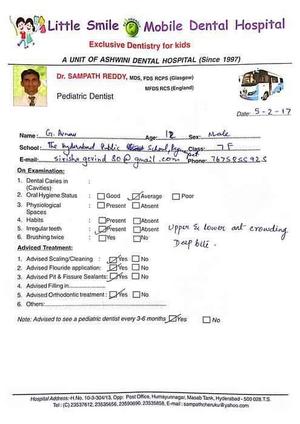 Little Smile Mobile Dental Hospital
Exclusive Dentistry for kids
A UNIT OF ASHWINI DENTAL HOSPITAL (Since 1997)
Dr. SAMPATH REDDY, MDS, FDS RCPS (Glasgow)
MFDS RCS (England)
Pediatric Dentist
Date: 5-2-17
Name: G. Arnav Age: 12 Sex: Male
School: The Hyderabad Public School, Class: 7 F
E-mail:
On Examination:
1. Dental Caries in : (Cavities)
2. Oral Hygiene Status : Good Average Poor
3. Physiological Spaces : Present Absent
4. Habits : Present Absent
5. Irregular teeth : Present Absent
6. Brushing twice : Yes No
Upper & lower ant crowding
Deep bite.
Adviced Treatment:
1. Advised Scaling/Cleaning : Yes No
2. Advised Flouride application: Yes No
3. Advised Pit & Fissure Sealants: Yes No
4. Advised Filling in
5. Advised Orthodontic treatment: Yes No
6. Others:
Note: Advised to see a pediatric dentist every 3-6 months Yes No
Hospital Address: H.No. 10-3-304/13, Opp: Post Office, Humayunnagar, Masab Tank, Hyderabad - 500 028 T.S.
Tel: (C) 23537612, 23535656, 23590690, 23535858, E-mail : sampathcheruku@yahoo.com